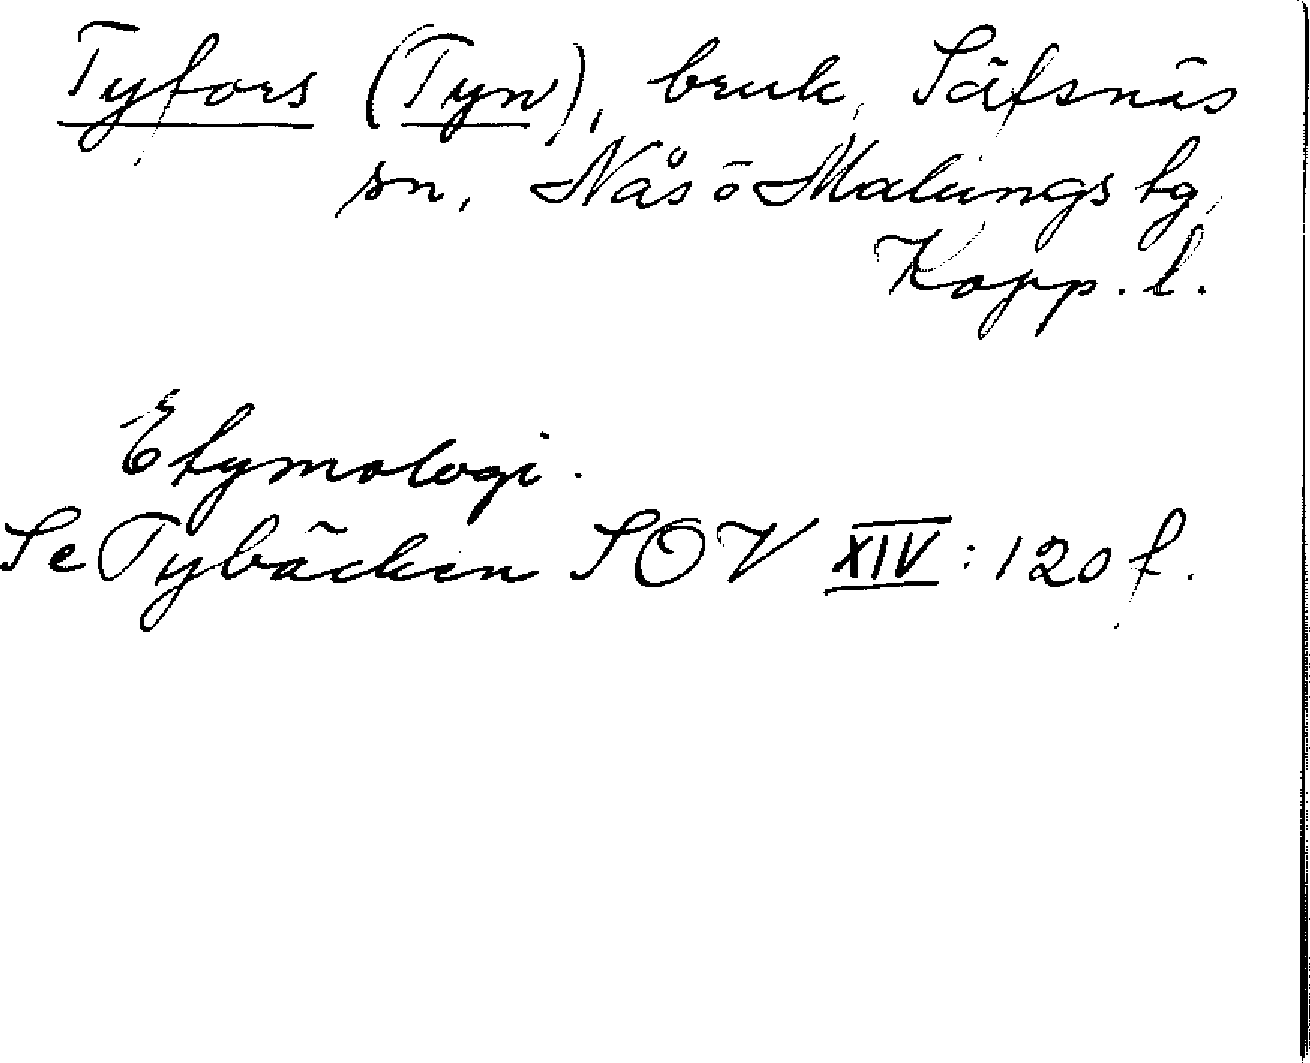 Tyfors (Tyn), bruk, Säfsnäs
sn, Nås ö Malungs tg,
Kopp. l.
Etymologi.
Se Tybäcken SOV XIV: 120 f.